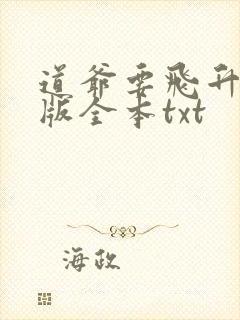 道爷要飞升
版全本txt
海政